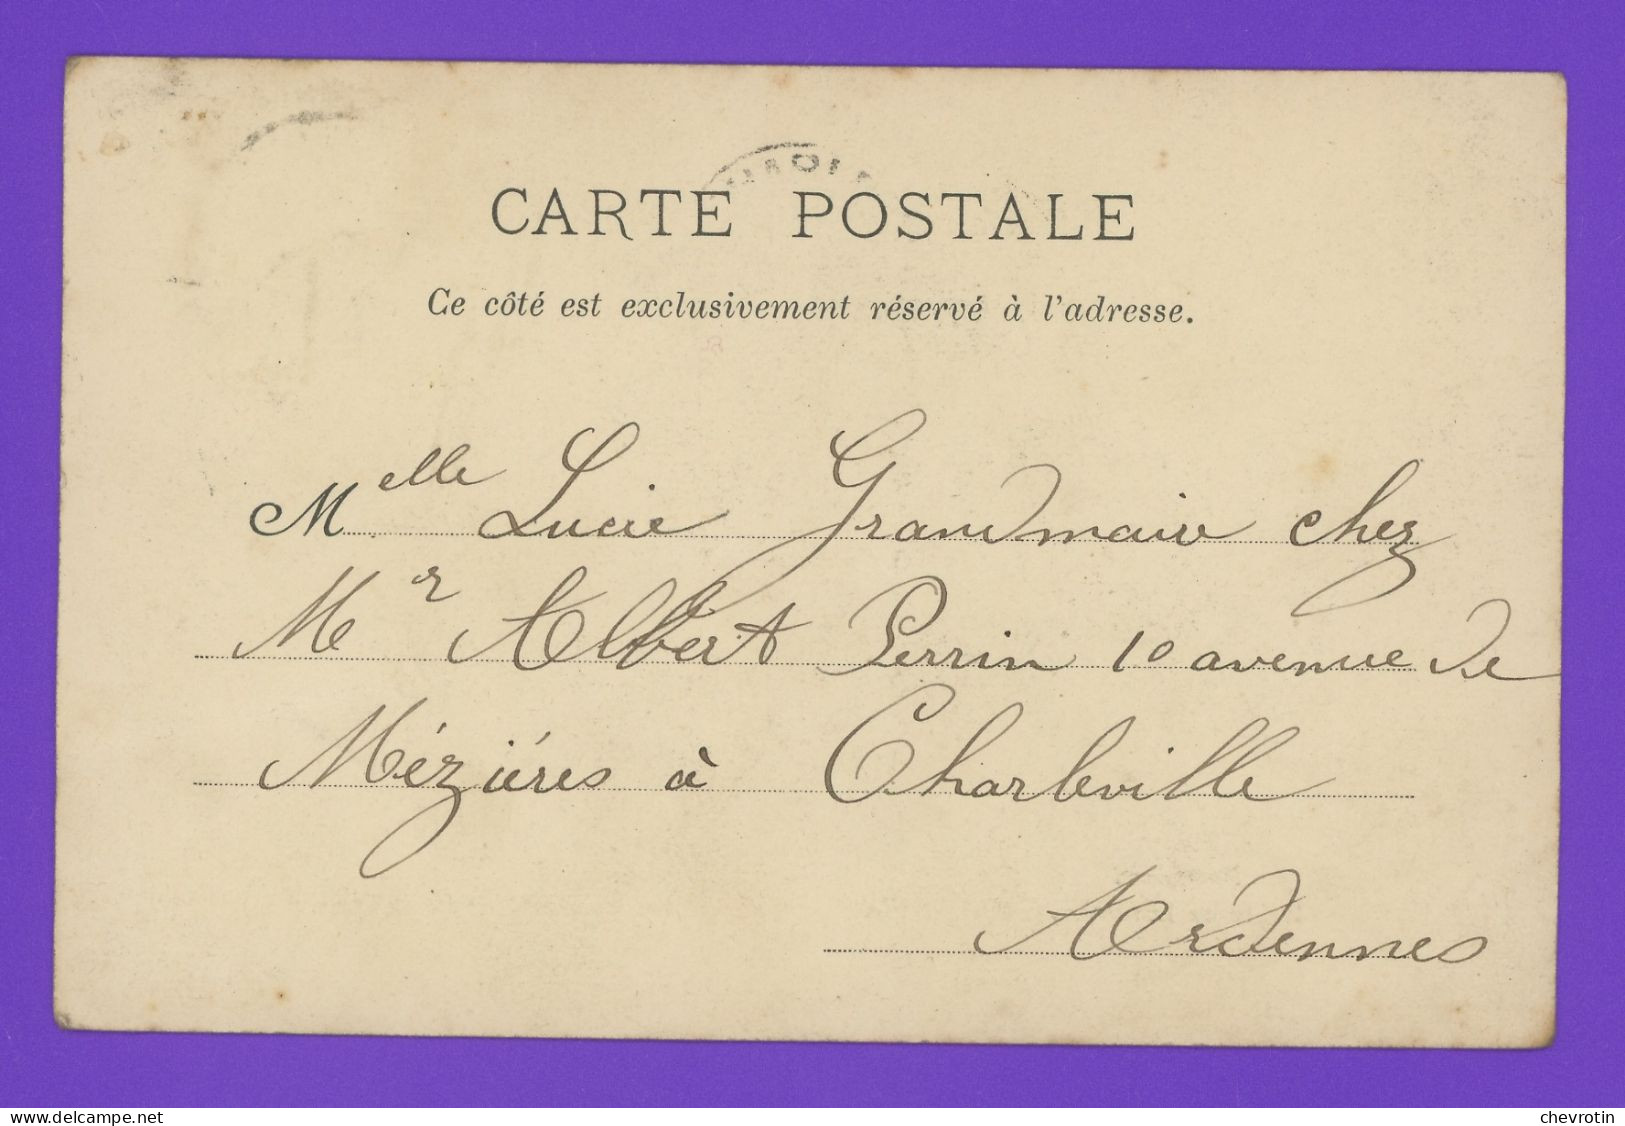 CARTE POSTALE
Ce côté est exclusivement réservé à l'adresse.
Melle Lucie Grandmaire chez
Mr Albert Perrin 10 avenue de
Mézières à Charleville
Ardennes
www.delcampe.net
chevrotin